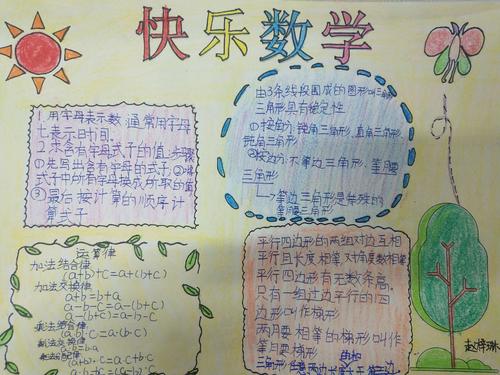 快乐数学
1.用字母表示数 通常用字母
t表示时间.
2.求含有字母式子的值步骤
①先写出含有字母的式子②
式子中所有字母换成所取的值
③最后按计算的顺序计
算式子
由3条线段围成的图形叫三角
三角形具有稳定性
①按角分:锐角三角形、直角三角形
钝角三角形
②按边分:不等边三角形、等腰
三角形
等边三角形是特殊的
等腰三角形
运算律
加法结合律
(a+b)+c=a+(b+c)
加法交换律
a+b=b+a
a-b-c=a-(b+c)
a-(b+c)=a-b-c
乘法结合律
(a·b)·c=a·(b·c)
乘法交换律
a·b=b·a
乘法分配律
平行四边形的两组对边互相
平行且长度相等 对角度数相等
平行四边形有无数条高.
只有一组边平行的四
边形叫作梯形
两月要相等的梯形叫作
等月要梯形
赵梓琳